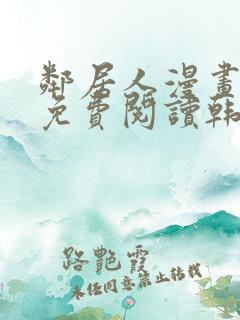 鄰居人漫畫
免費閱讀韩
路艷霞
未经同意禁止转载